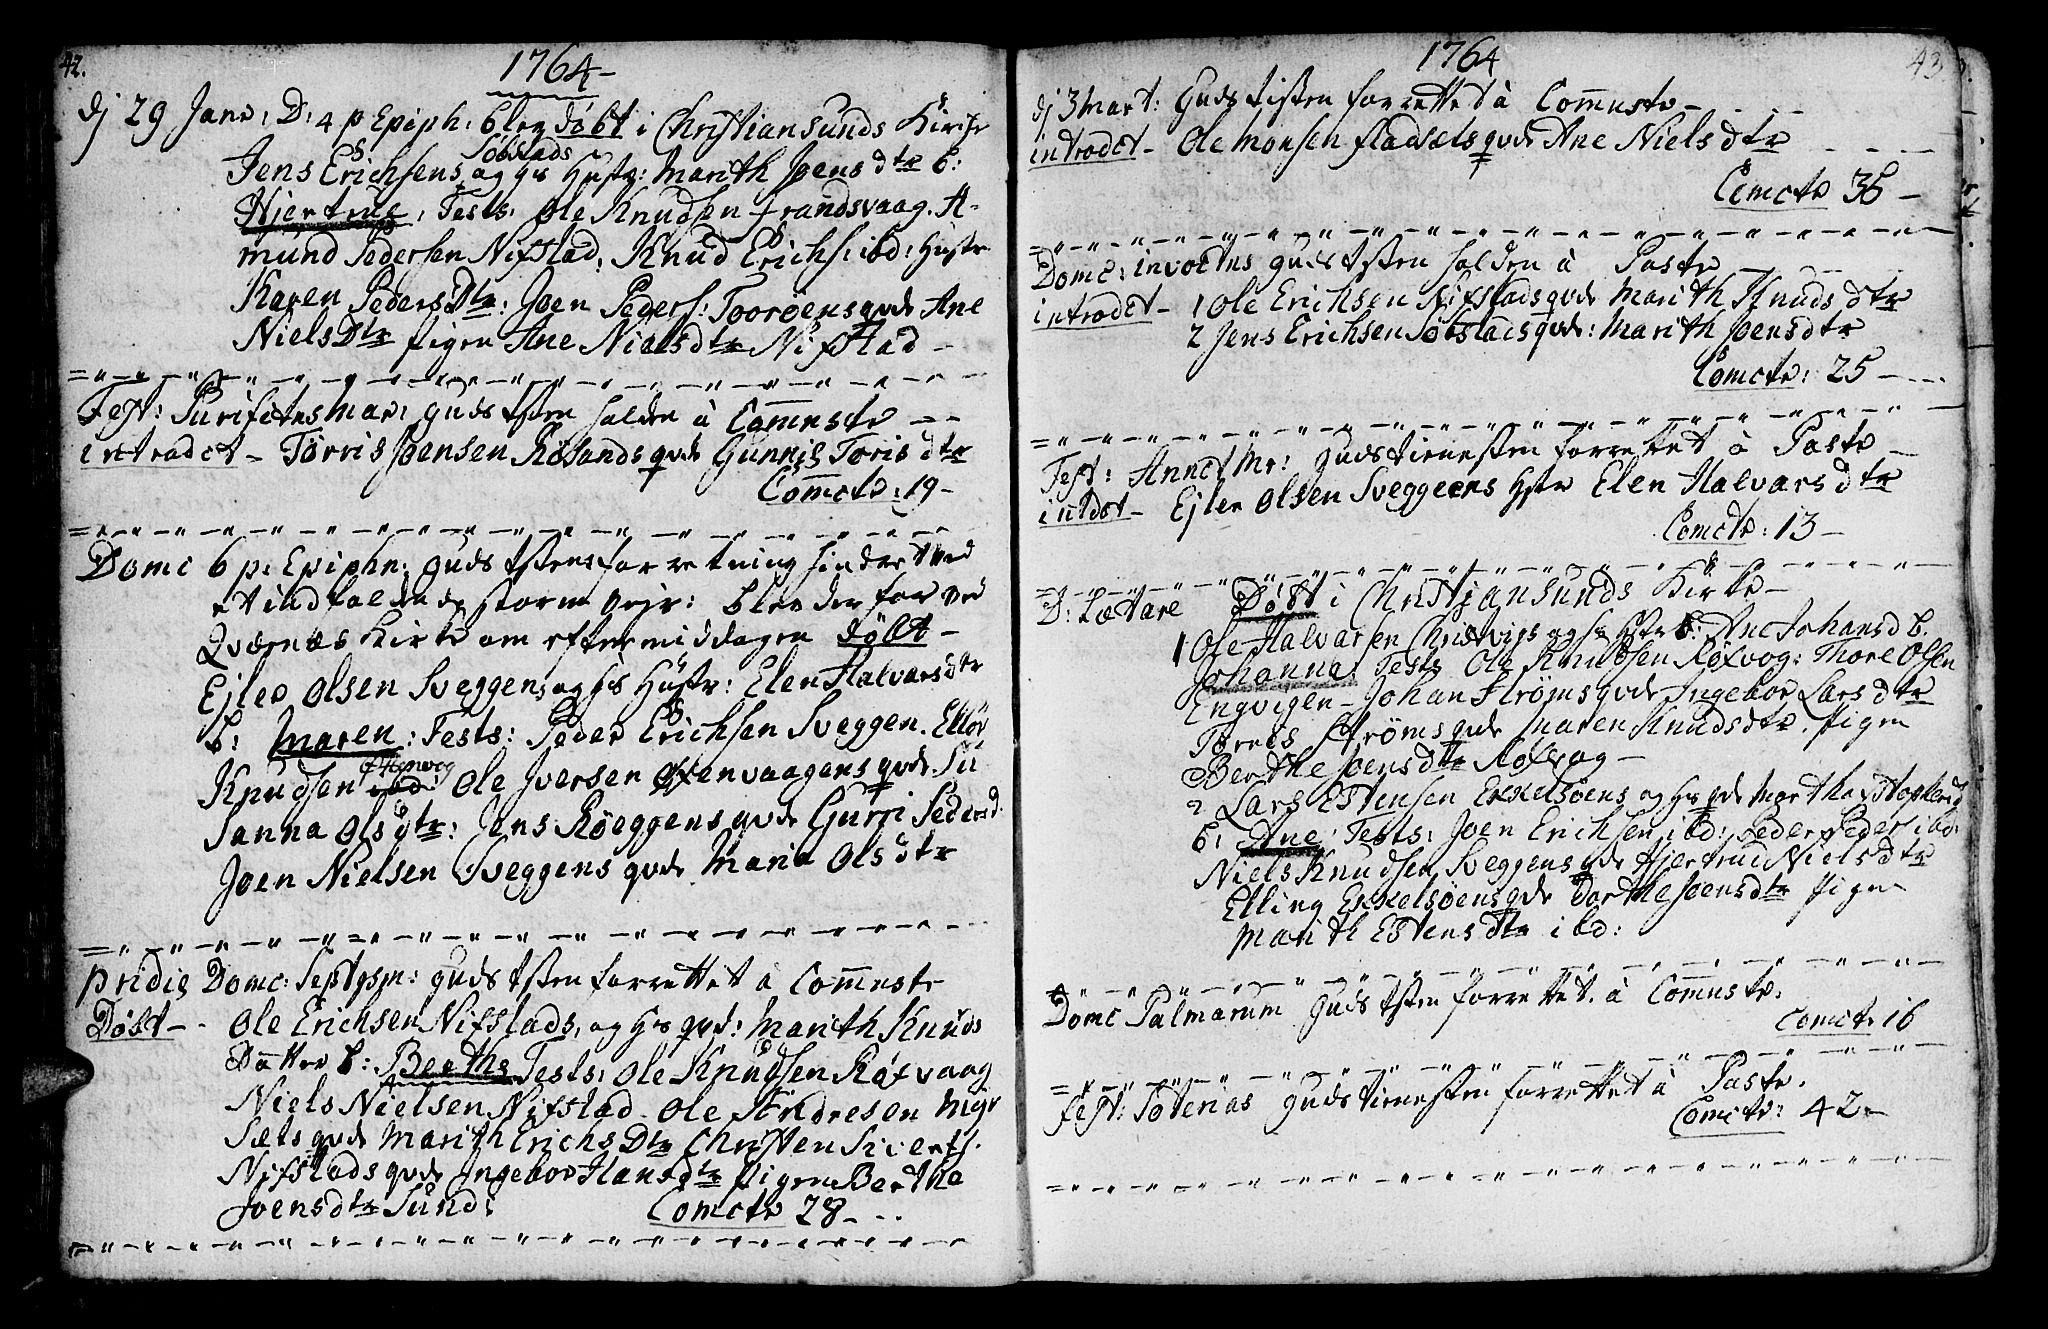 42.
1764 –
dj 29 Janr: D: 4 p Epiph: blev døbt i Christiansunds Kirke
Jens Erichsens Søbstads og hs Hustr: Marith Joensdtr b:
Hjertrue, Tests: Ole Knudsen Frandsvaag. A-
mund Pedersen Nifstad, Knud Erichs: ibd: Hustr
Karen PedersDtr: Joen Peders: Toorøens qvde Ane
NielsDtr Pigen Ane Nielsdtr Nifstad –
Fest: Purifctns Mar: Guds tisten holden à Commstr – –
introdct – Tørris Joensen Røsands qvde Gunnil Torisdtr
Comctr: 19 –
Domc 6 p: Epiphn: Guds tistens forretning hindret ved
et indfaldende storm vejr: blev der for ved
Qvernæs Kirke om eftermiddagen døbt –
Ejler Olsen Sveggen og hs Hustr: Elen Halvarsdtr
b: Maren: Tests: Peder Erichsen Sveggen. Ellev
Knudsen ibd: Ole Iversen Oxenvaagens qvde: Su
Sanna Olsdtr: Jens Røeggens qvde Gurri Pedersd.
Joen Nielsen Sveggens qvde Marie Olsdtr
pridie Domc: Septgsm: Guds tisten forrettet à Commstr
Døbt – Ole Erichsen Nifstads, og hs qvd: Marith Knuds
Datter b: Berthe Tests: Ole Knudsen Røxvaag
Niels Nielsen Nifstad. Ole Andresen Myr
Sæts qvde Marith ErichsDtr Christen Siverts.
Nifstads qvde Ingebor Hansdtr Pigen Berthe
Joensdtr Sund:
Comctr 28 –
1764
43
dj 3 Mart: Guds tisten forrettet à Commstr –
introdct – Ole Monsen Fladsæts qvde Ane Nielsdtr
Comctr 36 –
Domc: invoctns Guds tisten holden à Pastr
introdct – 1 Ole Erichsen Nifstads qvde Marith Knudsdtr
2 Jens Erichsen Søbstads qvde: Marith Joensdtr
Comctr: 25 –
Fest: Annct Mr: Guds tienesten forrettet à Pastr –
intdct – Ejler Olsen Sveggens Hstr Elen Halvarsdtr
Comctr: 13 –
D: Lætare Døbt i Christjansunds Kirke –
1 Ole Halvarsen Christvigs og hs Hstr b: Ane Johansd b.
Johanne: Tests Ole Knudsen Røxvog: Thore Olsen
Engvigen – Johan Strøms qvde Ingebor Larsdtr
Tørres Strøms qvde Maren Knudsdtr. Pigen
Berthe Joensdtr Røxvog –
2 Lars Estensen Exkelsøens og hs qvde Marthe
b: Ane: Tests: Joen Erichsen ibd: Peder Peders ibd:
Niels Knudsen Sveggens qvde Hjertrud Nielsdtr
Elling Exkelsøens qvde Dorthe Joensdtr Pigen
Marith Estensdtr ibd:
Domc Palmarum Guds tisten forrettet à Commstr.
Comctr 16
Fest: Soterias Guds tienesten forrettet à Pastr.
Comctr: 42 –